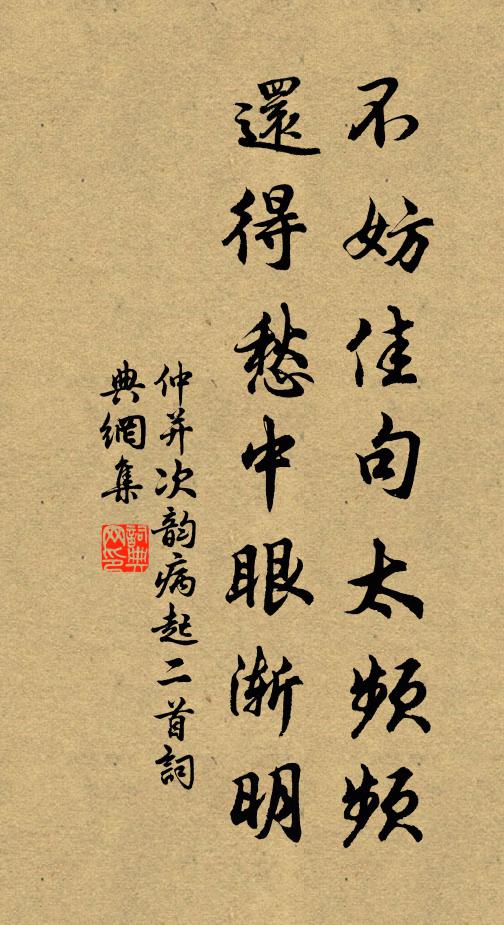 不妨佳句太頻頻
還得愁中眼漸明
仲并次韵病起二首詞
典網集
詞典網印